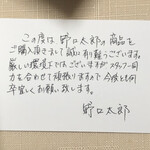 この度は 野口太郎の商品を
ご購入頂きまして誠に有り難うございます。
厳しい環境下ではございますがスタッフ一同
力を合わせて頑張りますので今後とも何
卒宜しくお願い致します。
野口太郎